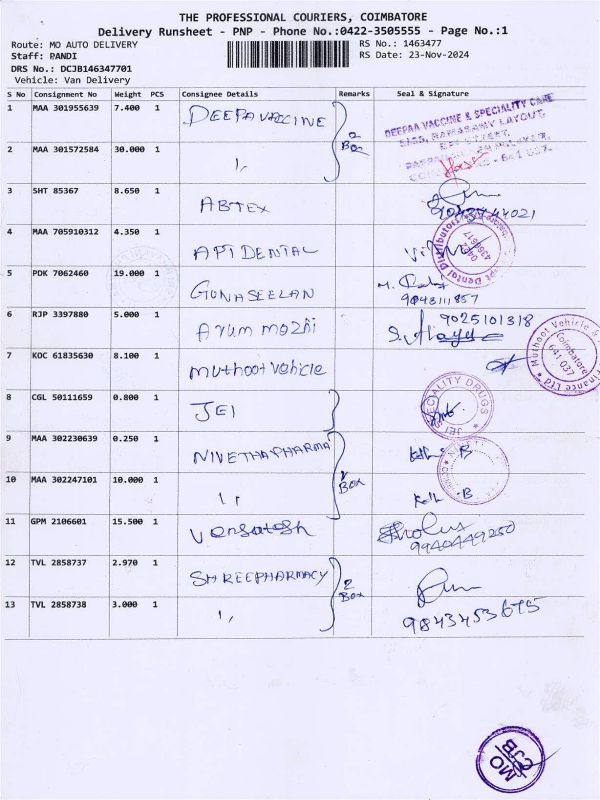 THE PROFESSIONAL COURIERS, COIMBATORE
Delivery Runsheet - PNP - Phone No.:0422-3505555 - Page No.:1
Route: MO AUTO DELIVERY RS No.: 1463477
Staff: PANDI RS Date: 23-Nov-2024
DRS No.: DCJB146347701
Vehicle: Van Delivery
S No Consignment No Weight PCS Consignee Details Remarks Seal & Signature
1 MAA 301955639 7.400 1 DEEPAVACCINE
DEEPAA VACCINE & SPECIALITY CARE
2 Box
2 MAA 301572584 30.000 1 ",
3 SHT 85367 8.650 1 ABTEX
9043744021
4 MAA 705910312 4.350 1 APT DENTAL
Apt Dental Distributors
5 PDK 7062460 19.000 1 GUNASEELAN
9843111857
6 RJP 3397880 5.000 1 Arum mozhi 9025101318
7 KOC 61835630 8.100 1 muthoot vehicle
Muthoot Vehicle & Finance Ltd
Coimbatore
641 037
8 CGL 50111659 0.800 1 JEI
JEI SPECIALITY DRUGS
9 MAA 302230639 0.250 1 NIVETHAPHARMA
Box
10 MAA 302247101 10.000 1 ",
11 GPM 2106601 15.500 1 Venkatesh
9940449250
12 TVL 2858737 2.970 1 SHREEPHARMACY
2 Box
13 TVL 2858738 3.000 1 ",
9843453675
MO
CJB